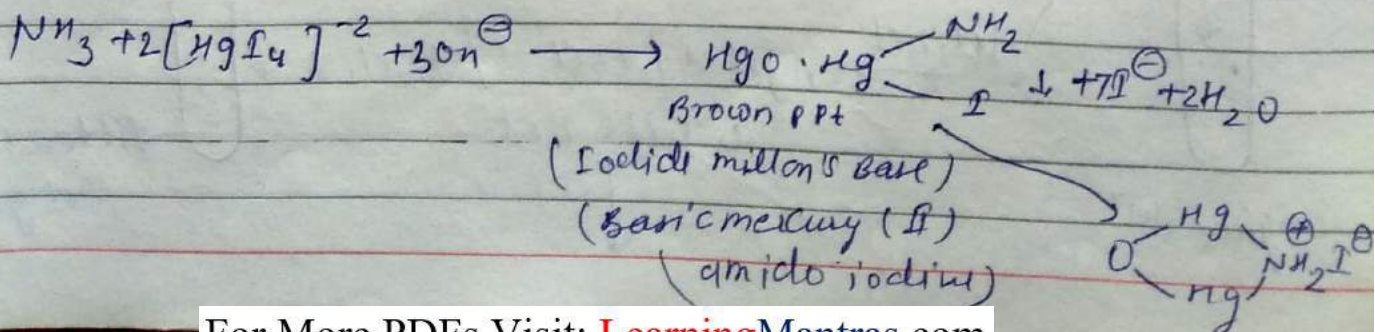 NH3 +2[HgI4]^-2 +3OH^⊖ ⟶ HgO · Hg NH2 I ↓ +7I^⊖ +2H2O
Brown PPt
(Iodide millon's Base)
(Basic mercury (II)
amido iodine)
O Hg Hg NH2^⊕ I^⊖
For More PDFs Visit: LearningMantras.com